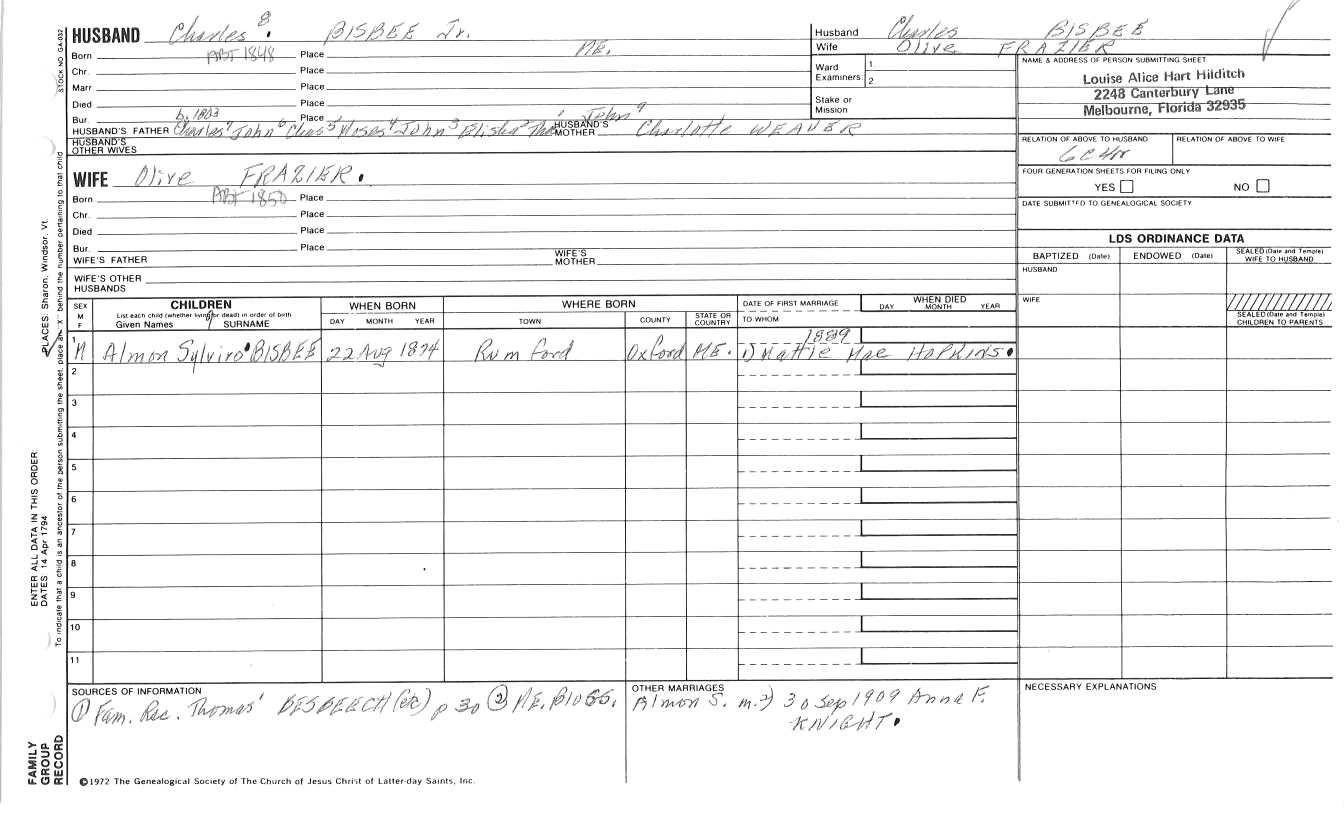 HUSBAND Charles 8 BISBEE Jr.
Born ABT 1848 Place ME.
Chr. Place
Marr Place
Died Place
Bur. b. 1803 Place
HUSBAND'S FATHER Charles 7 John 6 Chas 5 Moses 4 John 3 Elisha 2 Tho 1 John 9 HUSBAND'S MOTHER Charlotte WEAVER
HUSBAND'S OTHER WIVES
WIFE Olive FRAZIER.
Born ABT 1850 Place
Chr. Place
Died Place
Bur. Place
WIFE'S FATHER WIFE'S MOTHER
WIFE'S OTHER HUSBANDS
Husband Charles BISBEE
Wife Olive FRAZIER
Ward 1
Examiners: 2
Stake or Mission
NAME & ADDRESS OF PERSON SUBMITTING SHEET
Louise Alice Hart Hilditch
2248 Canterbury Lane
Melbourne, Florida 32935
RELATION OF ABOVE TO HUSBAND RELATION OF ABOVE TO WIFE
6C4R
FOUR GENERATION SHEETS FOR FILING ONLY
YES NO
DATE SUBMITTED TO GENEALOGICAL SOCIETY
LDS ORDINANCE DATA
BAPTIZED (Date) ENDOWED (Date) SEALED (Date and Temple) WIFE TO HUSBAND
HUSBAND
WIFE
SEALED (Date and Temple) CHILDREN TO PARENTS
SEX M F CHILDREN WHEN BORN WHERE BORN DATE OF FIRST MARRIAGE WHEN DIED
List each child (whether living or dead) in order of birth
Given Names SURNAME DAY MONTH YEAR TOWN COUNTY STATE OR COUNTRY TO WHOM DAY MONTH YEAR
1889
1 M Almon Sylviro BISBEE 22 Aug 1874 Rumford Oxford ME. 1) Mattie Mae HOPKINS.
2
3
4
5
6
7
8
9
10
11
SOURCES OF INFORMATION
① Fam. Rec. Thomas' BESBEECH (etc) p 30 ② ME. BIOGS.
OTHER MARRIAGES
Almon S. m. 2) 30 Sep 1909 Anna F.
KNIGHT.
NECESSARY EXPLANATIONS
©1972 The Genealogical Society of The Church of Jesus Christ of Latter-day Saints, Inc.
STOCK NO. GA-032
To indicate that a child is an ancestor of the person submitting the sheet, place an X behind the number pertaining to that child
PLACES: Sharon, Windsor, Vt.
ENTER ALL DATA IN THIS ORDER
DATES 14 Apr 1794
FAMILY GROUP RECORD